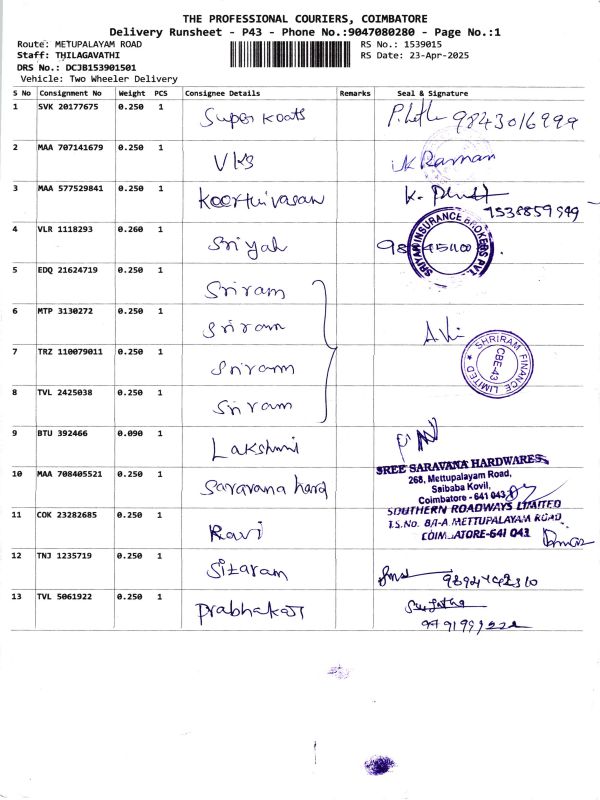 THE PROFESSIONAL COURIERS, COIMBATORE
Delivery Runsheet - P43 - Phone No.:9047080280 - Page No.:1
Route: METUPALAYAM ROAD RS No.: 1539015
Staff: THILAGAVATHI RS Date: 23-Apr-2025
DRS No.: DCJB153901501
Vehicle: Two Wheeler Delivery
S No Consignment No Weight PCS Consignee Details Remarks Seal & Signature
1 SVK 20177675 0.250 1 Super Koats 9843016999
2 MAA 707141679 0.250 1 VKS Raman
3 MAA 577529841 0.250 1 Keerthivasan K.
7538859949
4 VLR 1118293 0.260 1 Sriyah
SRIYAH INSURANCE BROKERS PVT.
5 EDQ 21624719 0.250 1 Sriram
6 MTP 3130272 0.250 1 Sriram
7 TRZ 110079011 0.250 1 Sriram SHRIRAM FINANCE LIMITED CBE-43
8 TVL 2425038 0.250 1 Sriram
9 BTU 392466 0.090 1 Lakshmi
10 MAA 708405521 0.250 1 Saravana hard
SREE SARAVANA HARDWARES
268, Mettupalayam Road,
Saibaba Kovil,
Coimbatore - 641 043
11 COK 23282685 0.250 1 Ravi
SOUTHERN ROADWAYS LIMITED
T.S.No. 8/1-A METTUPALAYAM ROAD
COIM_ATORE-641 043
12 TNJ 1235719 0.250 1 Sitaram
13 TVL 5061922 0.250 1 Prabhakar Sujatha